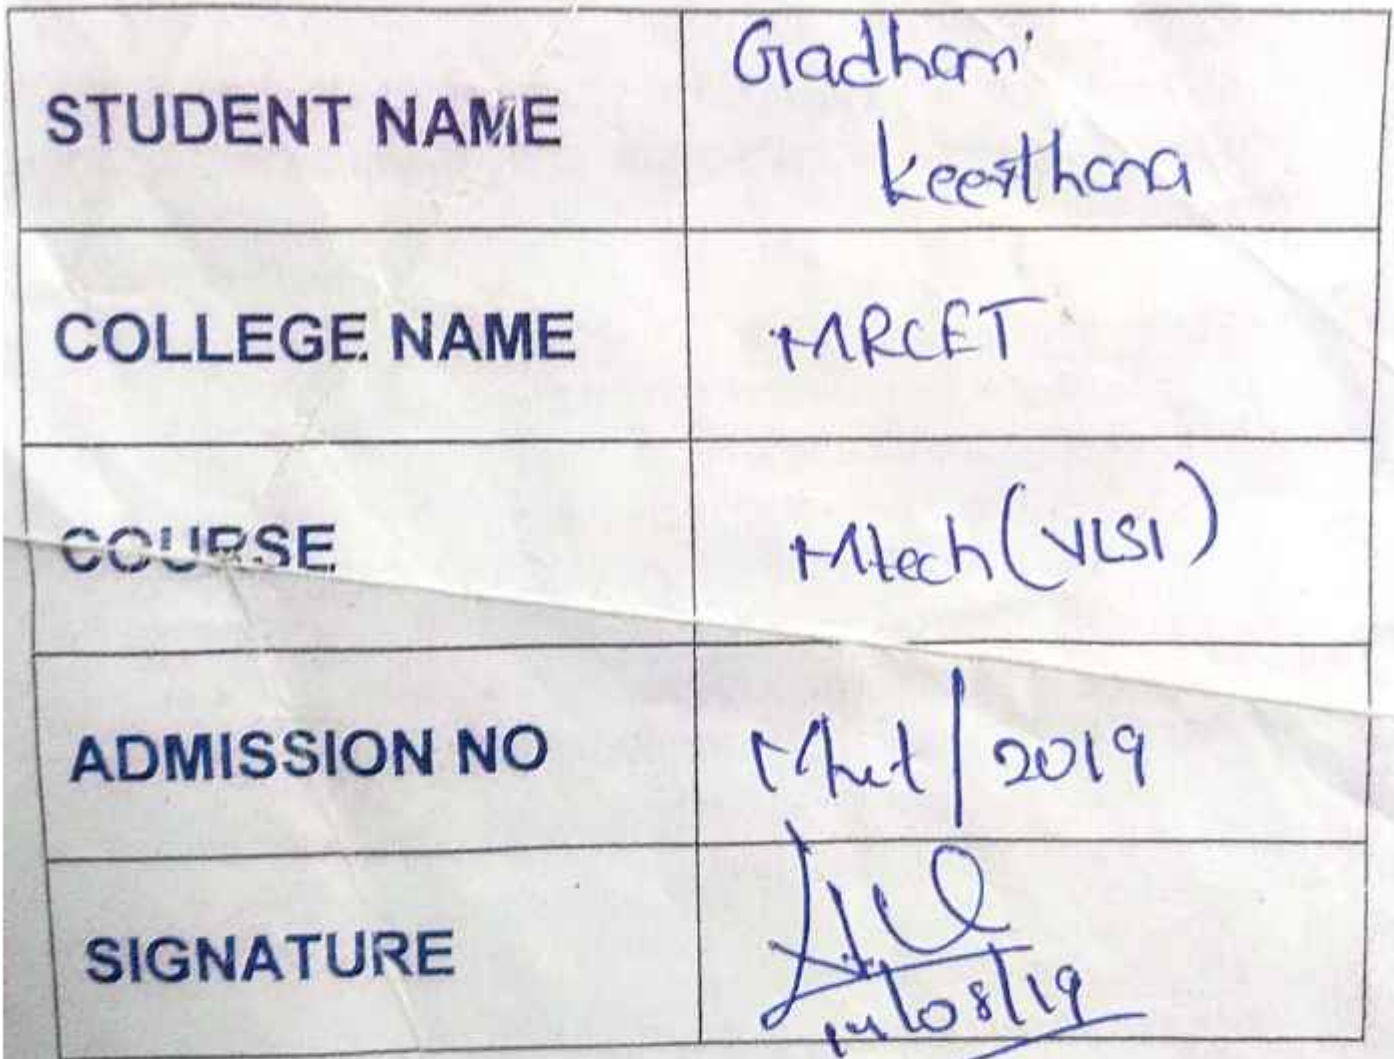 STUDENT NAME
Gadham
Keerthana
COLLEGE NAME MRCET
COURSE Mtech (VLSI)
ADMISSION NO 2019
SIGNATURE
14/08/19